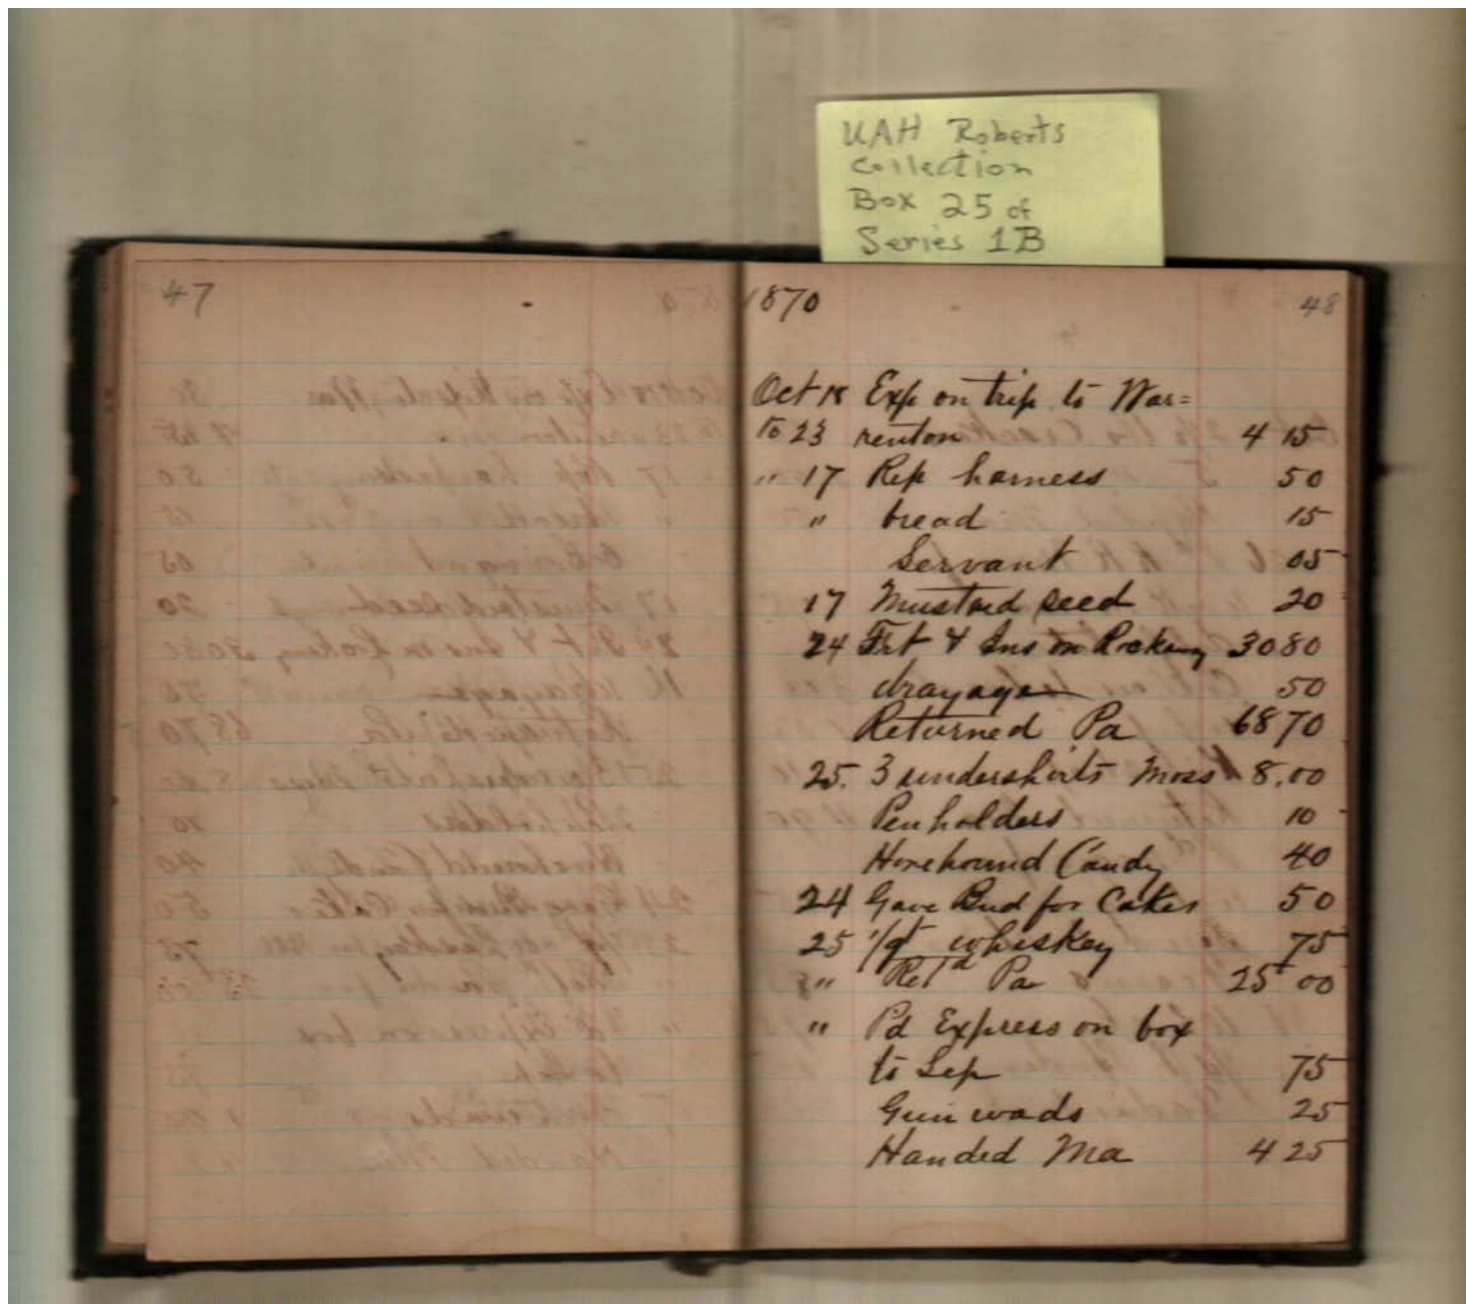 UAH Roberts
Collection
Box 25 of
Series 1B
47
1870 48
Oct 18 Exp on trip to War=
to 23 renton 4 15
" 17 Rep harness 50
" bread 15
Servant 05
17 Mustard seed 20
24 Frt & Ins on Rockaway 30 80
drayage 50
Returned Pa 68 70
25. 3 undershirts Moss 8.00
Penholders 10
Horehound Candy 40
24 Gave Bud for Cakes 50
25 1/qt whiskey 75
" Retd Pa 25 00
" Pd Express on box
to Sep 75
Gun wads 25
Handed Ma 4 25